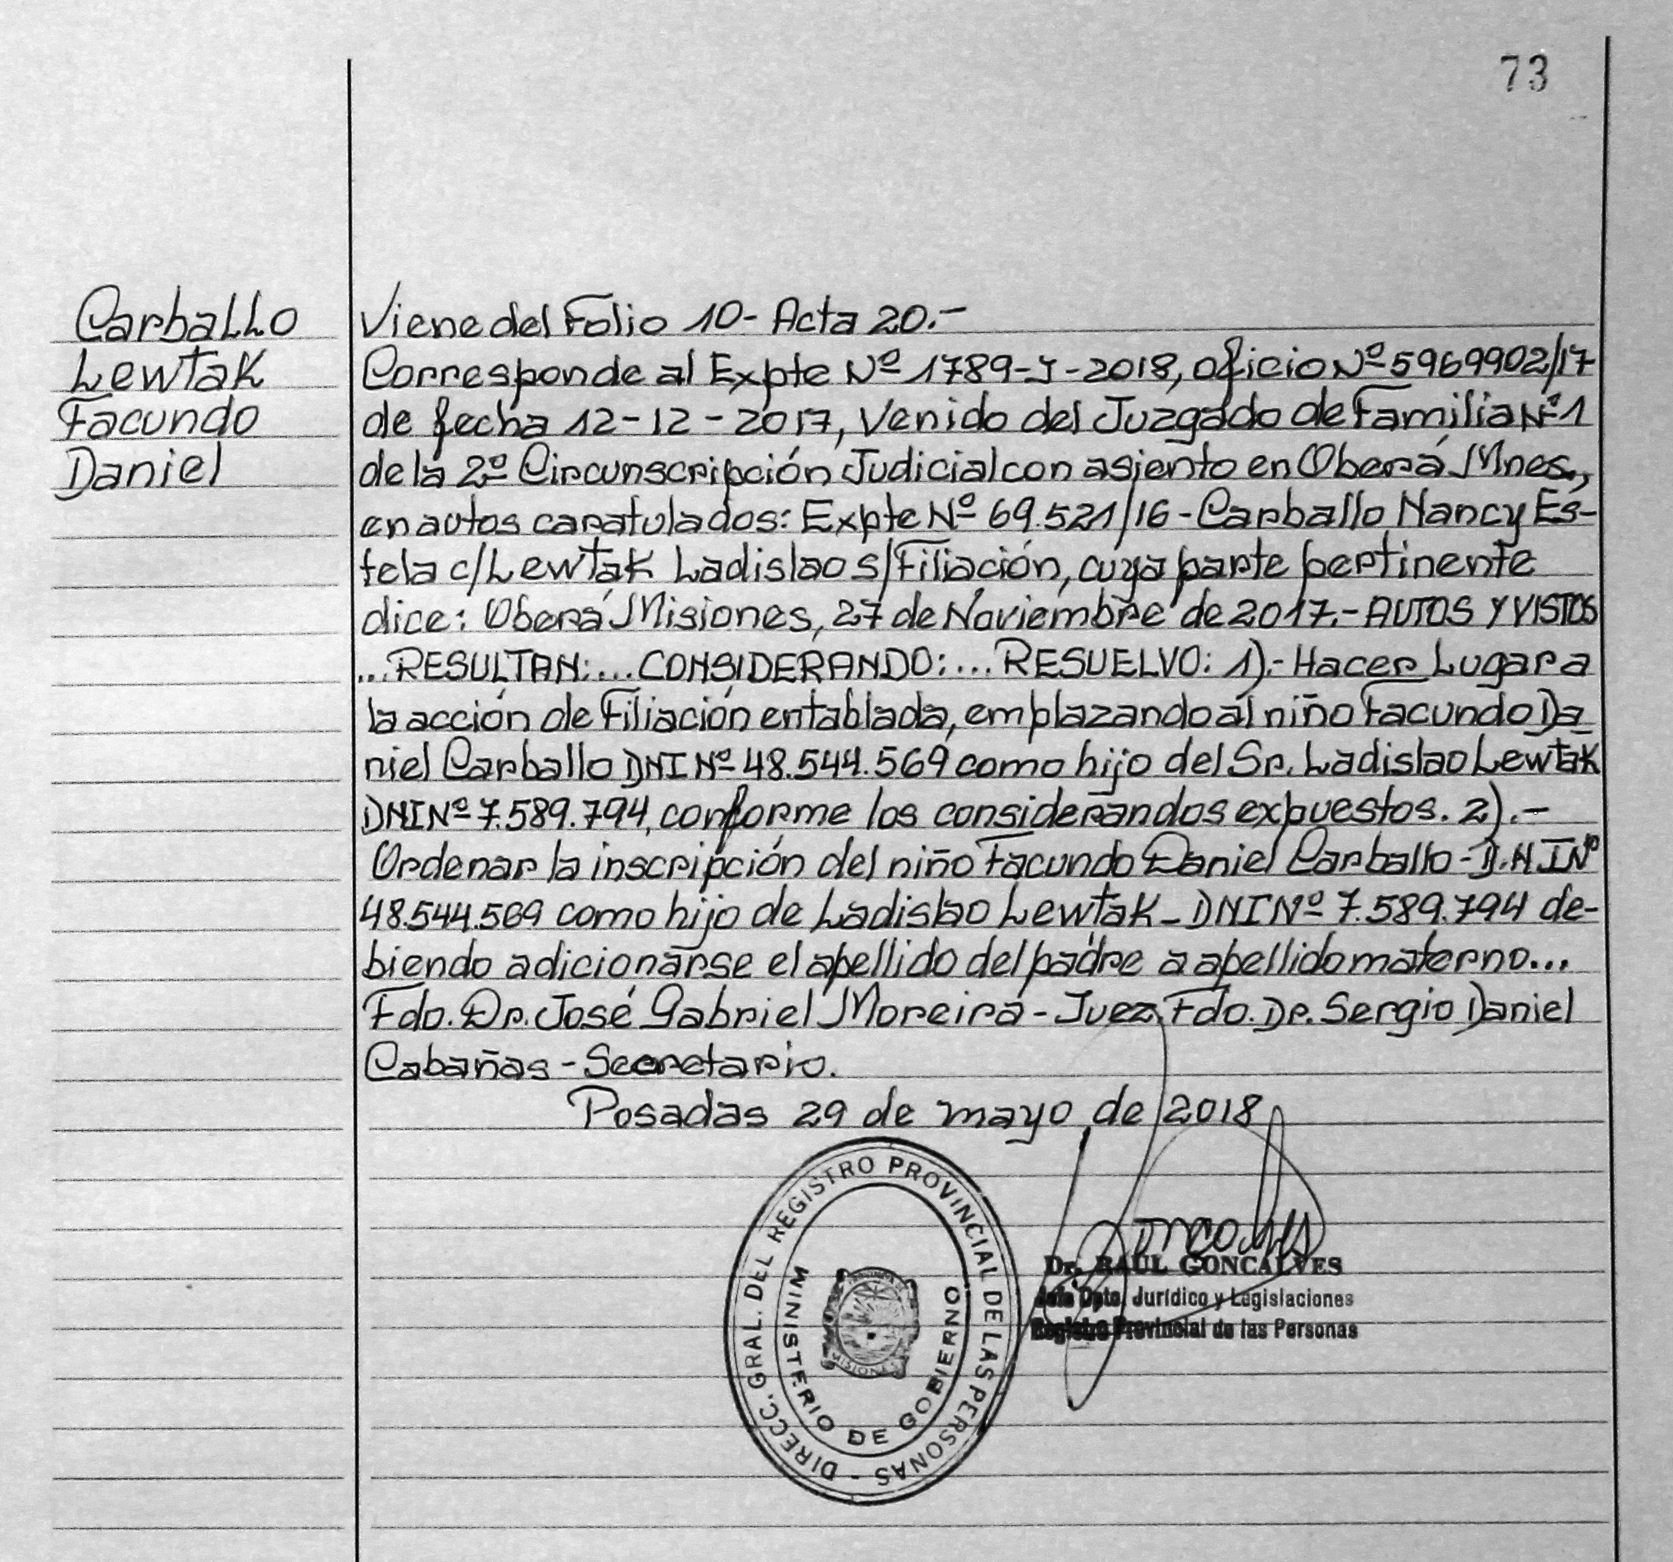 73
Carballo
Lewtak
Facundo
Daniel
Viene del Folio 10- Acta 20.-
Corresponde al Expte Nº 1789-J-2018, oficio Nº 5969902/17
de fecha 12-12-2017, Venido del Juzgado de Familia Nº 1
de la 2º Circunscripción Judicial con asiento en Oberá Mnes.,
en autos caratulados: Expte Nº 69.521/16 - Carballo Nancy Es-
tela c/Lewtak Ladislao s/Filiación, cuya parte pertinente
dice: Oberá Misiones, 27 de Noviembre de 2017.- AUTOS Y VISTOS
...RESULTAN:...CONSIDERANDO:...RESUELVO: 1).- Hacer Lugar a
la acción de Filiación entablada, emplazando al niño Facundo Da
niel Carballo DNI Nº 48.544.569 como hijo del Sr. Ladislao Lewtak
DNI Nº 7.589.794, conforme los considerandos expuestos. 2).-
Ordenar la inscripción del niño Facundo Daniel Carballo - D.N.I Nº
48.544.569 como hijo de Ladislao Lewtak - DNI Nº 7.589.794 de-
biendo adicionarse el apellido del padre a apellido materno...
Fdo. Dr. José Gabriel Moreira - Juez, Fdo. Dr. Sergio Daniel
Cabañas - Secretario.
Posadas 29 de mayo de 2018
DIRECC. GRAL. DEL REGISTRO PROVINCIAL DE LAS PERSONAS -
MINISTERIO DE GOBIERNO
MISIONES
Dr. RAUL GONCALVES
Jefe Dpto. Jurídico y Legislaciones
Registro Provincial de las Personas